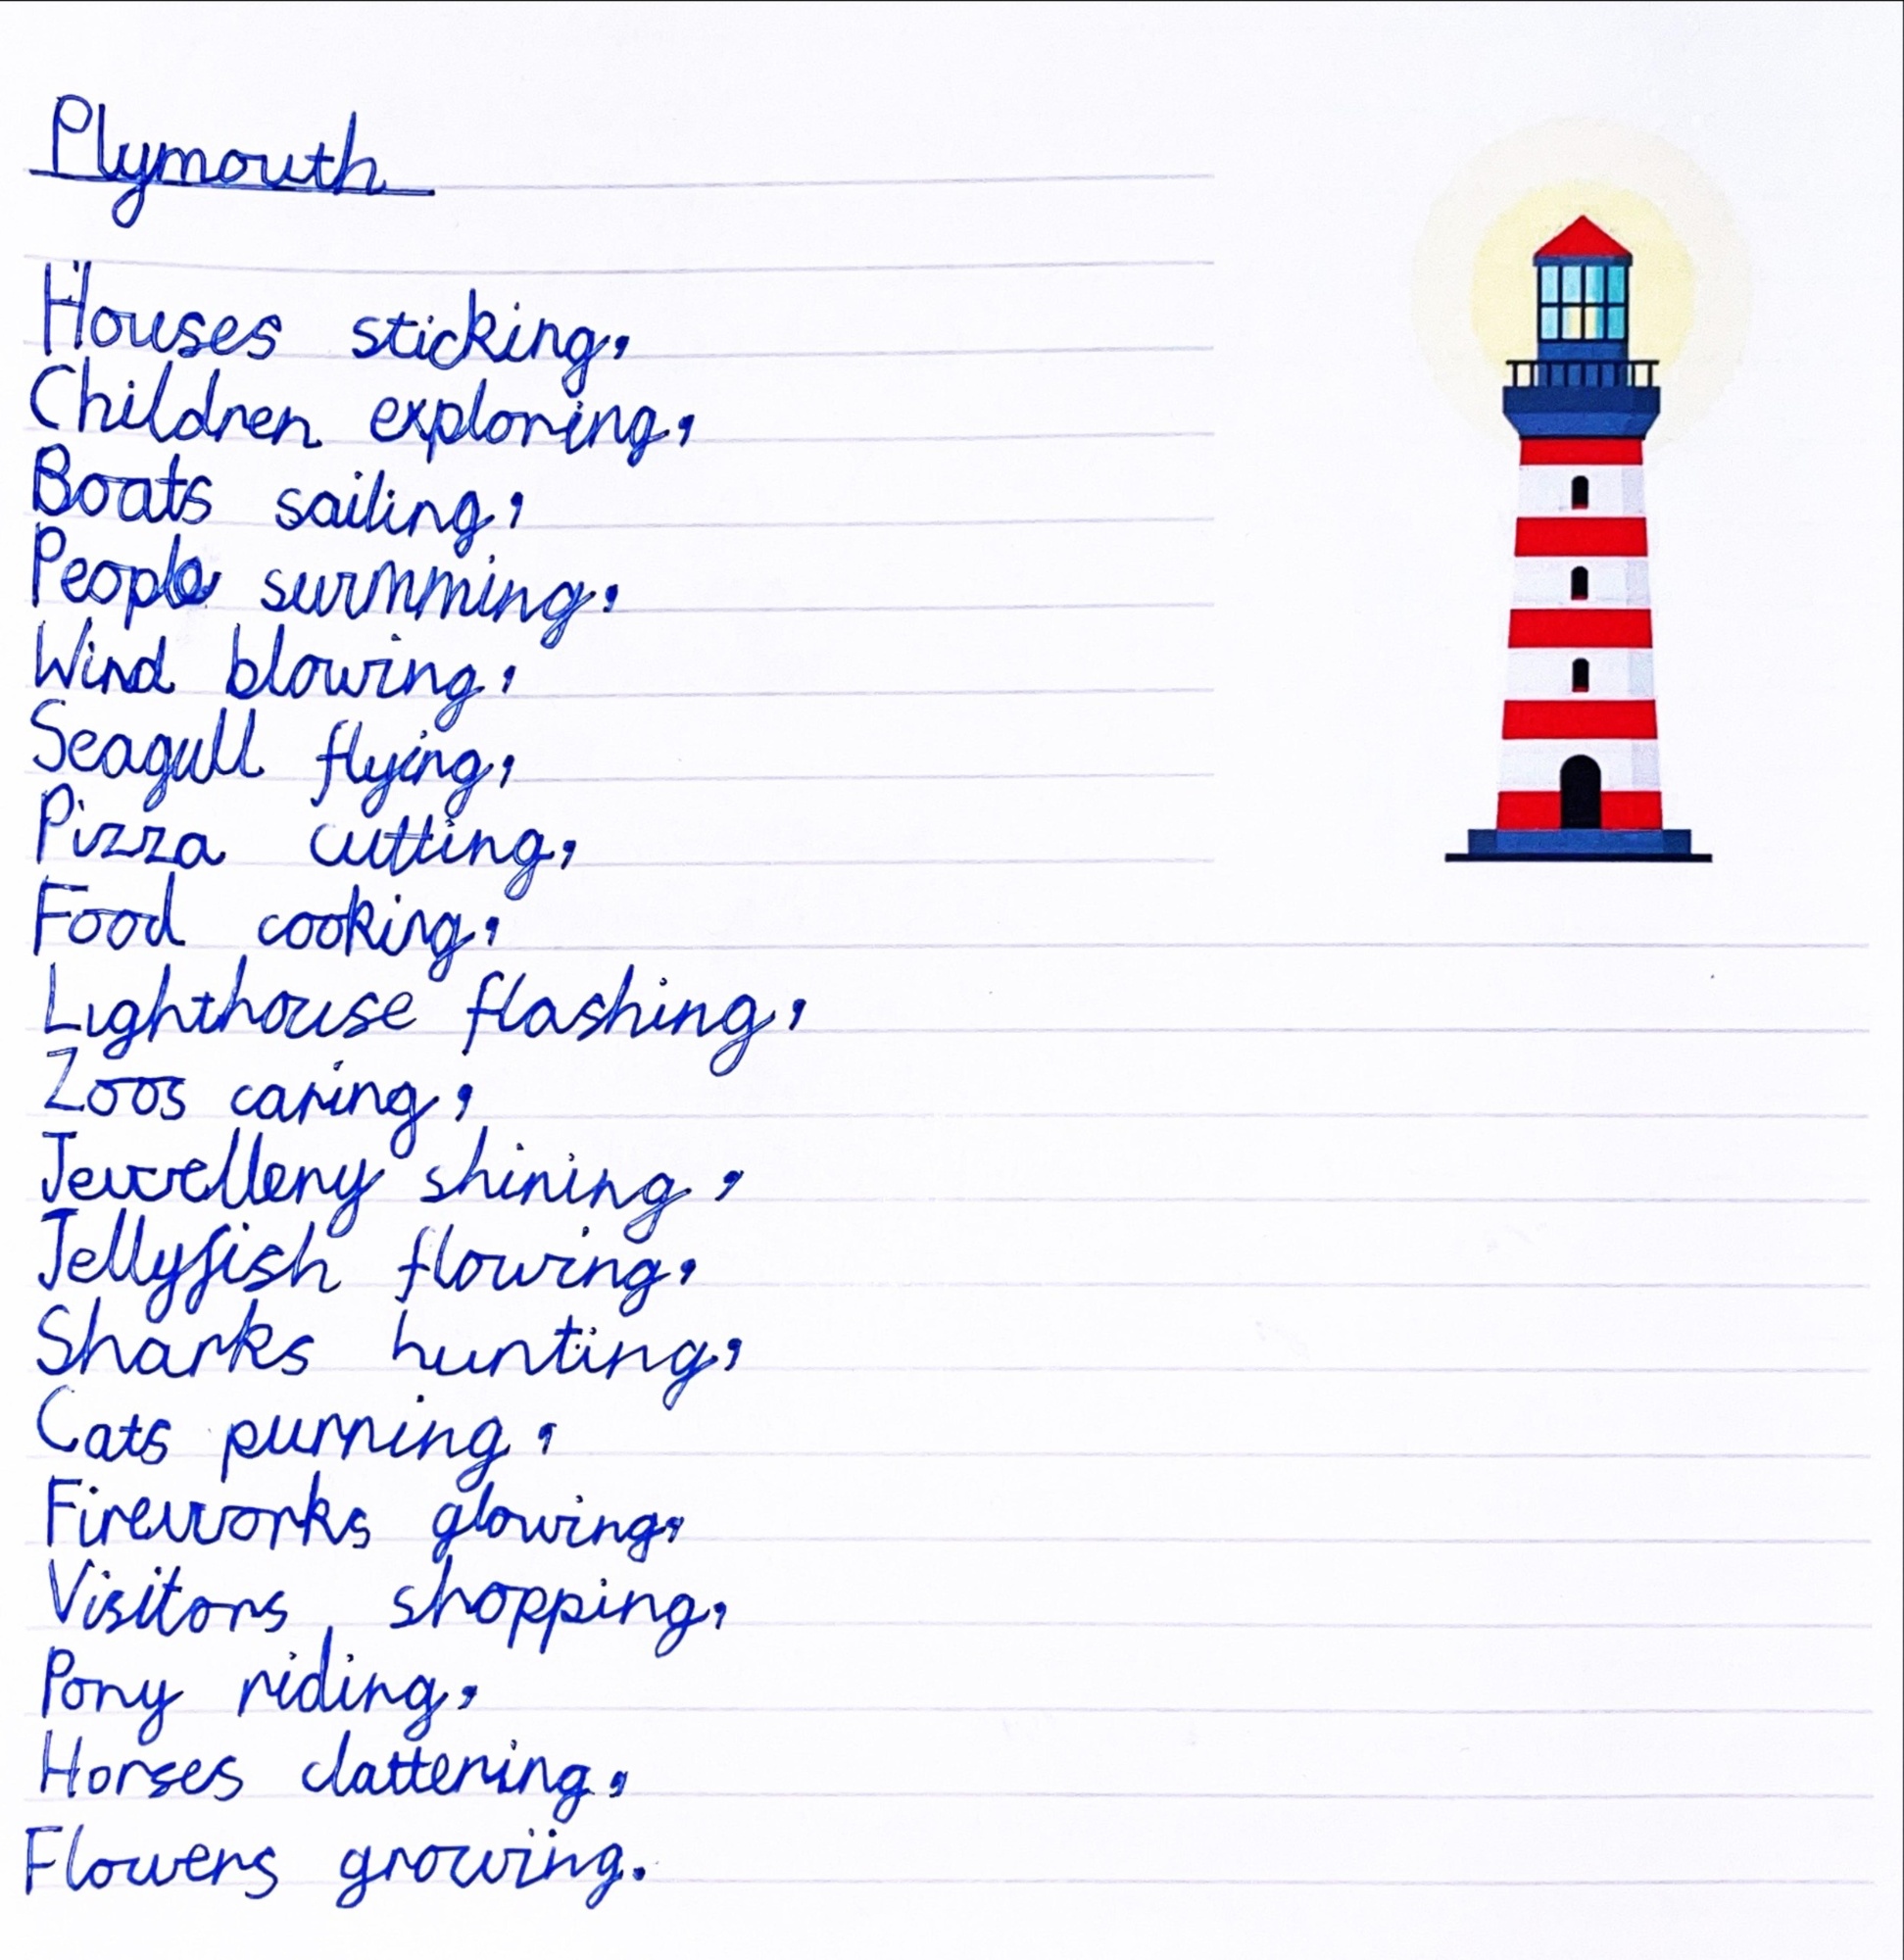 Plymouth
Houses sticking,
Children exploring,
Boats sailing,
People swimming,
Wind blowing,
Seagull flying,
Pizza cutting,
Food cooking,
Lighthouse flashing,
Zoos caring,
Jewellery shining,
Jellyfish flowing,
Sharks hunting,
Cats purring,
Fireworks glowing,
Visitors shopping,
Pony riding,
Horses clattering,
Flowers growing.